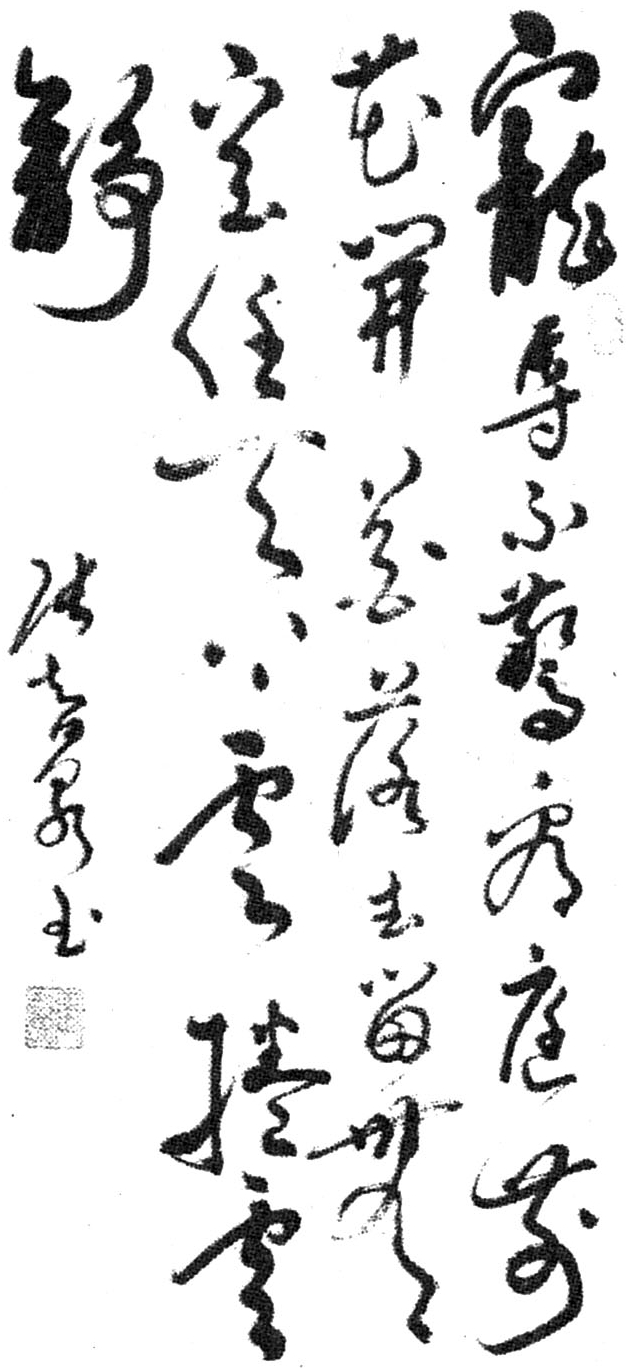 寵辱不驚看庭前
花開花落去留無
意任天外雲捲雲
舒
張 泉書